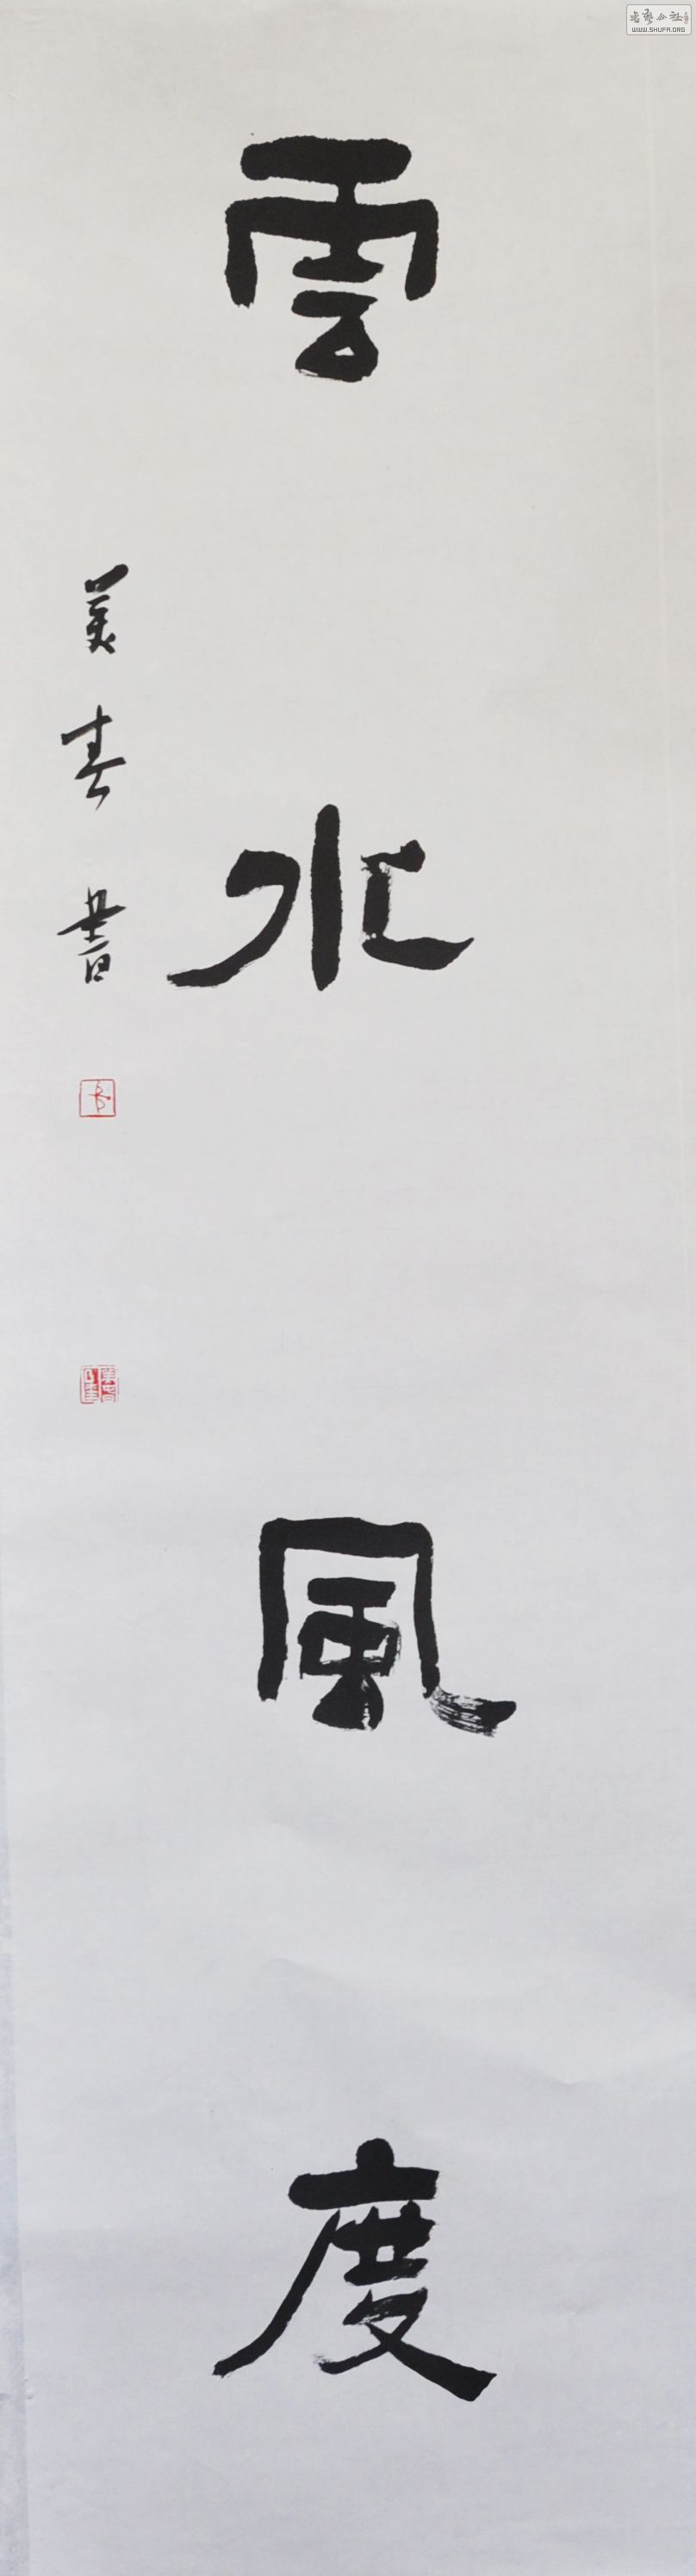 雲水風度
美春書
書法公社
WWW.SHUFA.ORG